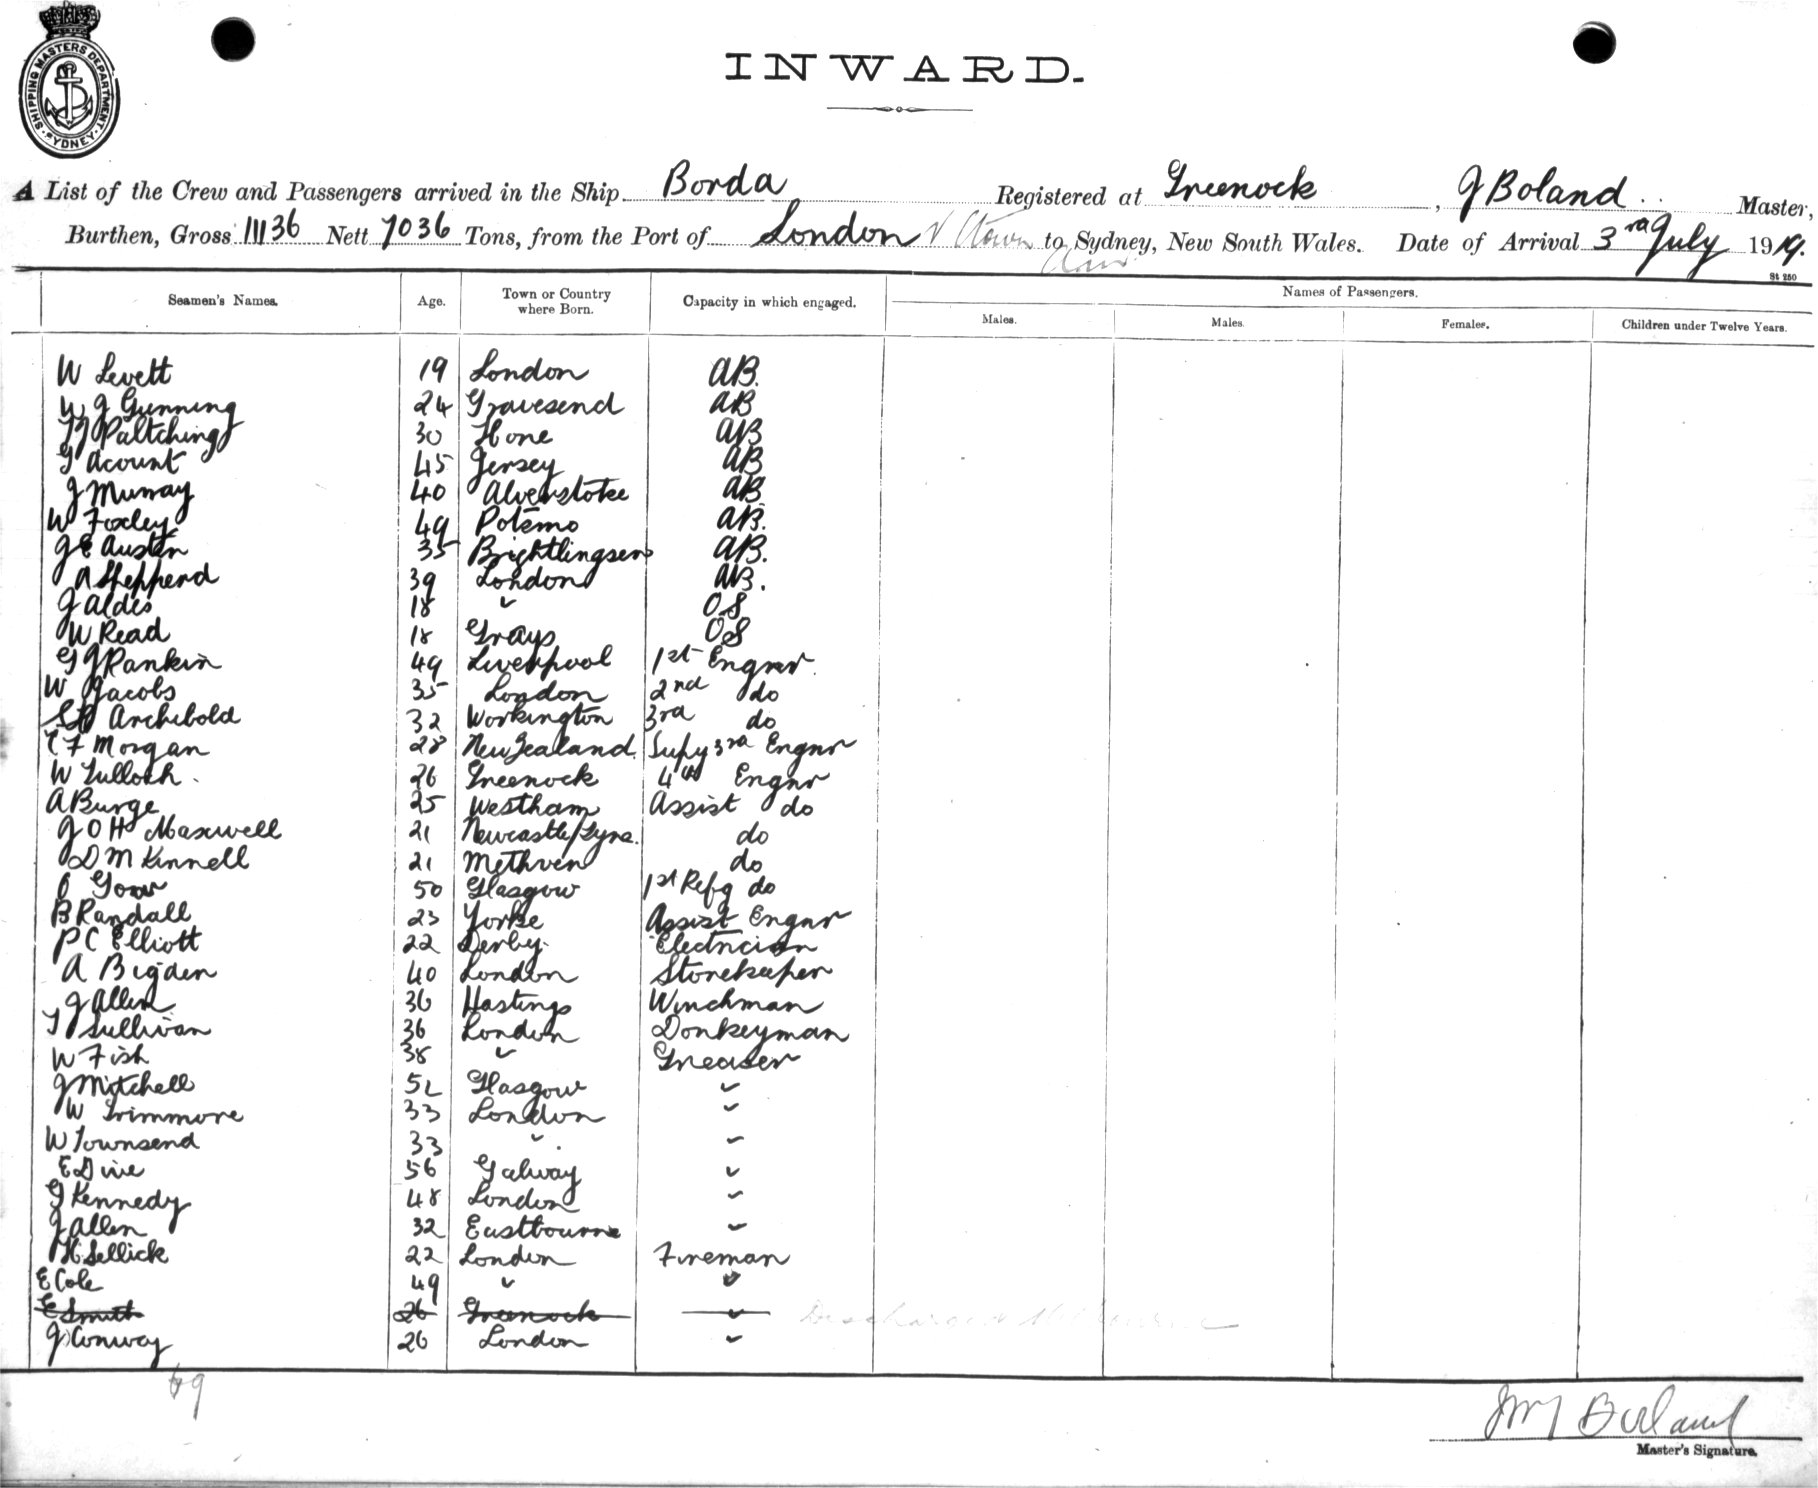 SHIPPING MASTERS DEPARTMENT
SYDNEY
INWARD.
A List of the Crew and Passengers arrived in the Ship Borda Registered at Greenock, J Boland Master,
Burthen, Gross 11136 Nett 7036 Tons, from the Port of London to Sydney, New South Wales. Date of Arrival 3rd July 1919.
St 250
Seamen's Names. Age. Town or Country where Born. Capacity in which engaged. Names of Passengers.
Males. Males. Females. Children under Twelve Years.
W Levett 19 London AB.
W J Gunning 24 Gravesend AB
Patching 30 Hone AB
G Acount 45 Jersey AB
J Murray 40 Alverstoke AB
W Foxley 49 AB.
J E Austin 35 Brightlingsea AB.
A Shepperd 39 London AB.
J Aldis 18 " OS
W Read 18 Grays OS
G J Rankin 49 Liverpool 1st Engnr
W Jacobs 35 London 2nd do
Archibold 32 Workington 3rd do
F Morgan 28 New Zealand Supy 3rd Engnr
W Tulloch 26 Greenock 4th Engnr
A Burge 25 Westham Assist do
J O H Maxwell 21 Newcastle/Tyne. do
D M Kinnell 21 Methven do
Gow 50 Glasgow 1st Refg do
B Randall 23 Yorke Assist Engnr
P C Elliott 22 Derby Electrician
A Bigden 40 London Storekeeper
J Allen 36 Hastings Winchman
T Sullivan 36 London Donkeyman
W Fish 38 " Greaser
J Mitchell 52 Glasgow "
W Trimmore 33 London "
W Townsend 33 " "
E Dine 56 Galway "
J Kennedy 48 London "
J Allen 32 Eastbourne "
H Sellick 22 London Fireman
E Cole 49 " "
E Smith 26 Greenock " Discharged Melbourne
J Conway 26 London "
69
Boland
Master's Signature.